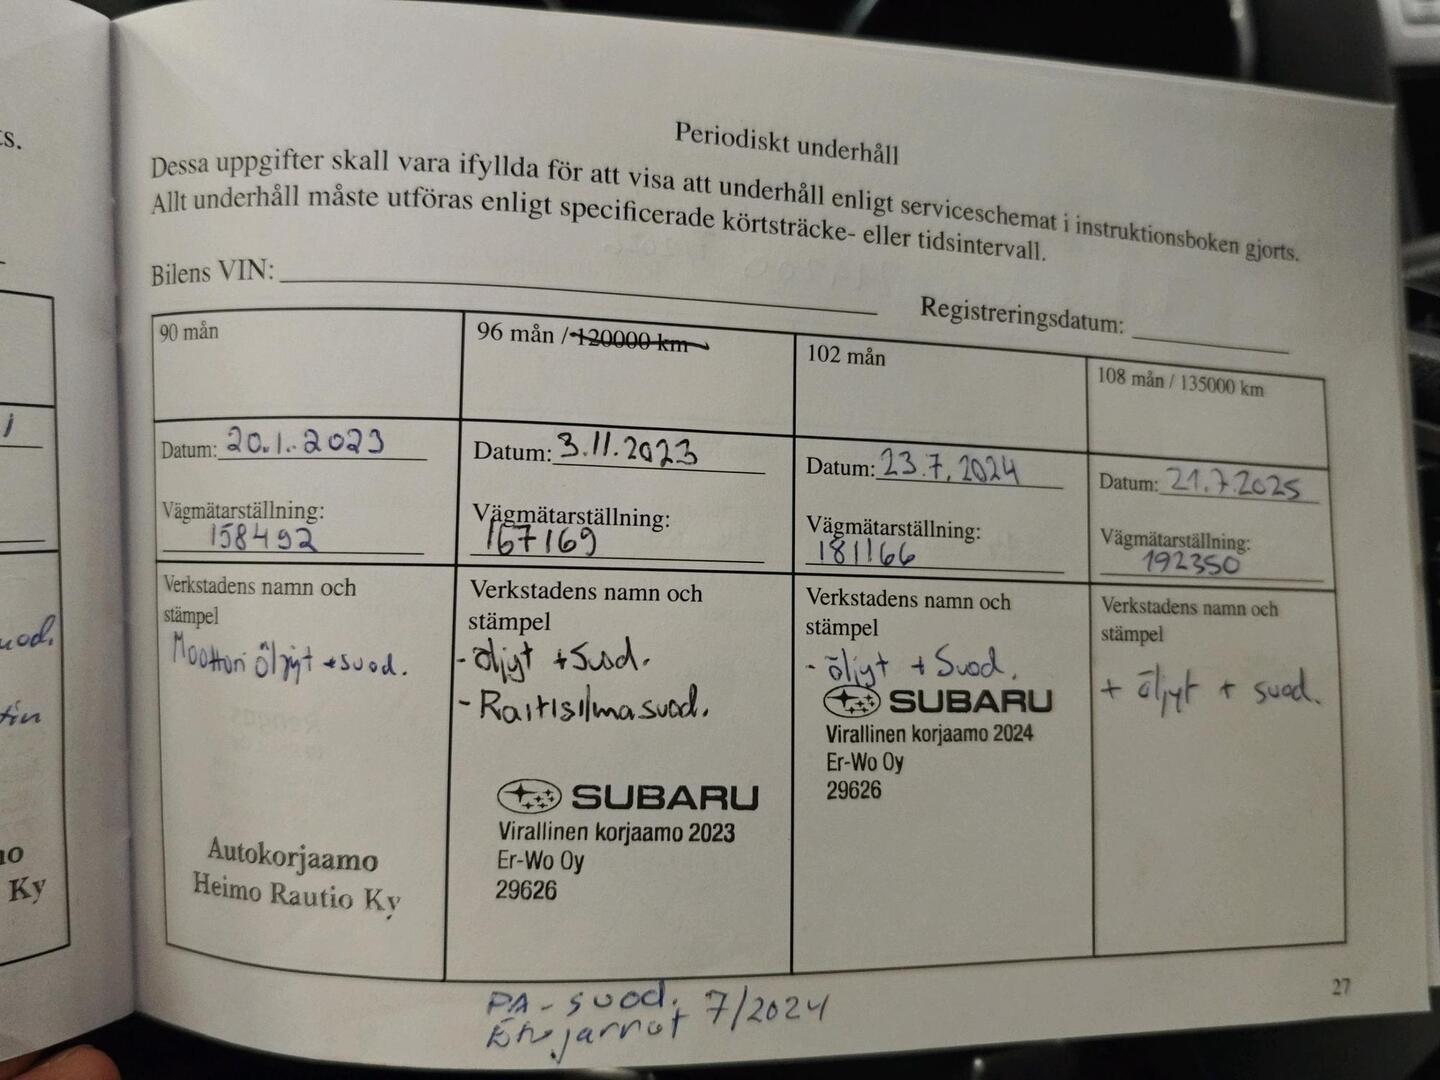 s.
Periodiskt underhåll
Dessa uppgifter skall vara ifyllda för att visa att underhåll enligt serviceschemat i instruktionsboken gjorts.
Allt underhåll måste utföras enligt specificerade körtsträcke- eller tidsintervall.
Bilens VIN:
Registreringsdatum:
90 mån
96 mån / 120000 km
102 mån
108 mån / 135000 km
Datum: 20.1.2023
Datum: 3.11.2023
Datum: 23.7.2024
Datum: 21.7.2025
Vägmätarställning:
158492
Vägmätarställning:
167169
Vägmätarställning:
181166
Vägmätarställning:
192350
Verkstadens namn och
stämpel
Moottori öljyt + suod.
Autokorjaamo
Heimo Rautio Ky
Verkstadens namn och
stämpel
- öljyt + suod.
- Raitisilmasuod.
SUBARU
Virallinen korjaamo 2023
Er-Wo Oy
29626
Verkstadens namn och
stämpel
- öljyt + suod.
SUBARU
Virallinen korjaamo 2024
Er-Wo Oy
29626
Verkstadens namn och
stämpel
+ öljyt + suod.
Ky
PA-suod. 7/2024
Etujarrut
27